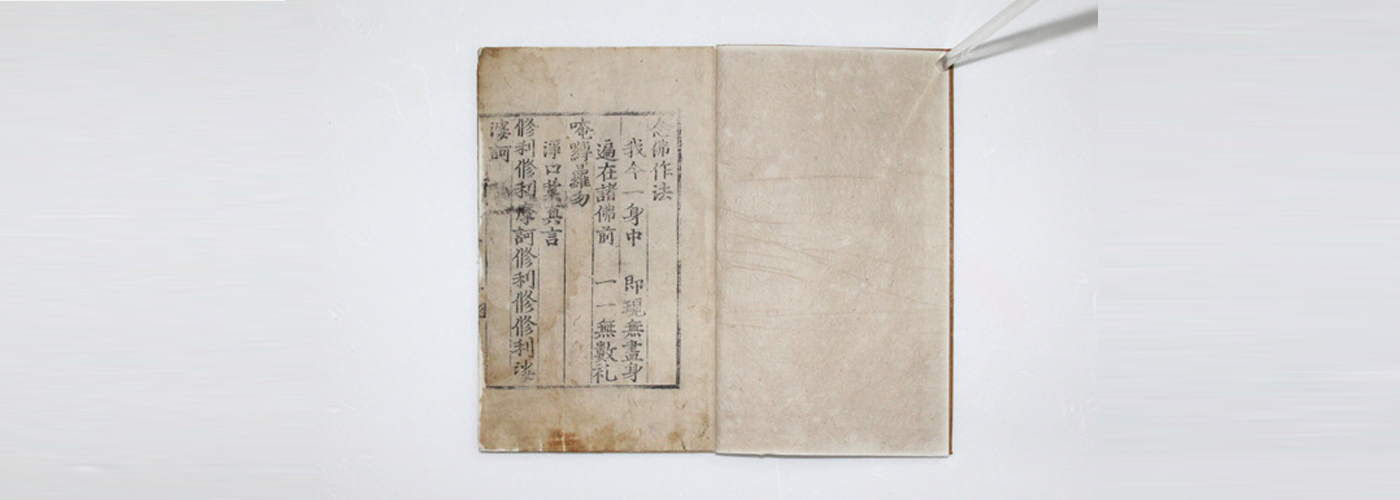 念佛作法
我今一身中 即現無盡身
遍在諸佛前 一一無數礼
唵羅勿
淨口業真言
修利修利摩訶修利修修利娑
婆訶